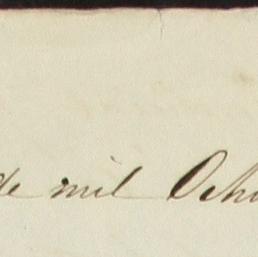 de mil Ocho